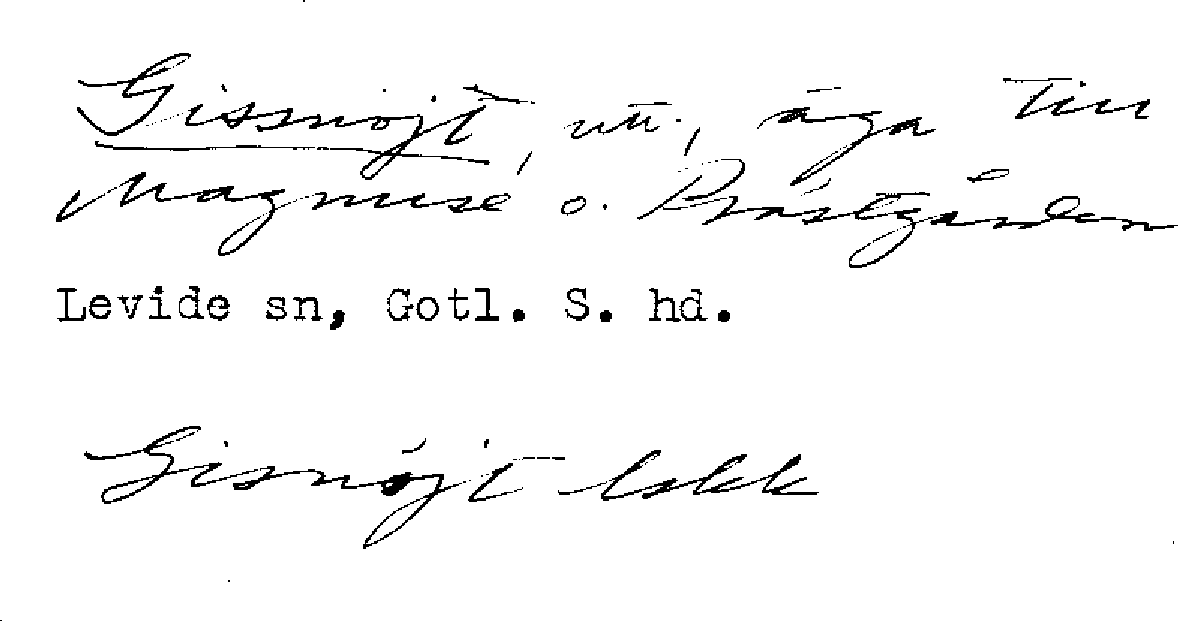 Gissnöjt, utt., äga till
Magnuse o. Prästgården
Levide sn, Gotl. S. hd.
Gisnöjt